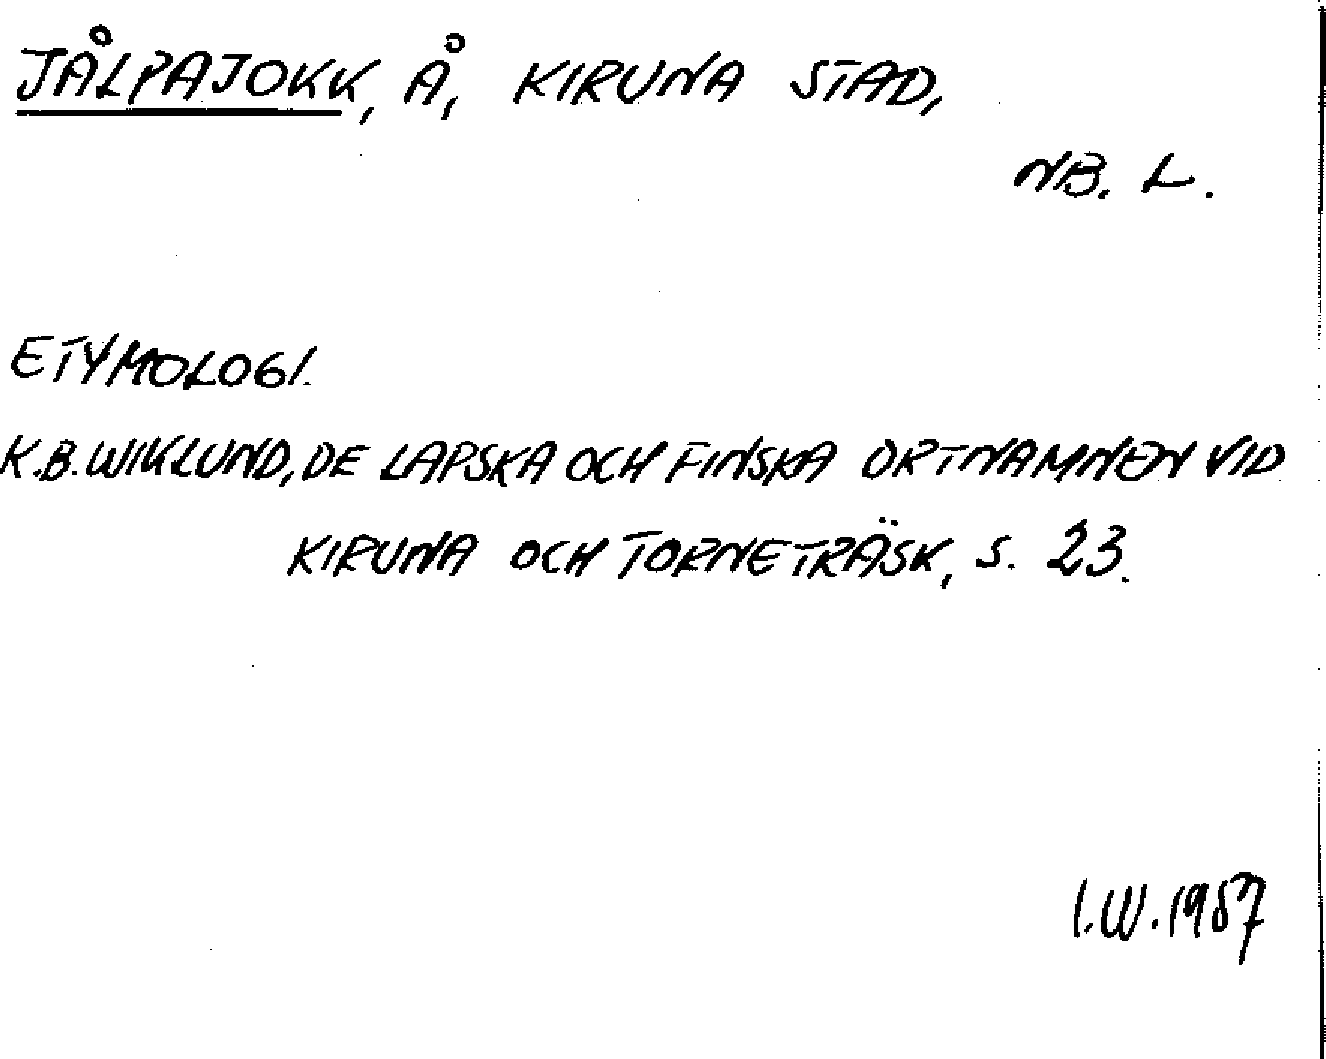 JÅLPAJOKK, Å, KIRUNA STAD,
NB. L.
ETYMOLOGI.
K.B. WIKLUND, DE LAPSKA OCH FINSKA ORTNAMNEN VID
KIRUNA OCH TORNETRÄSK, S. 23.
I.W. 1987